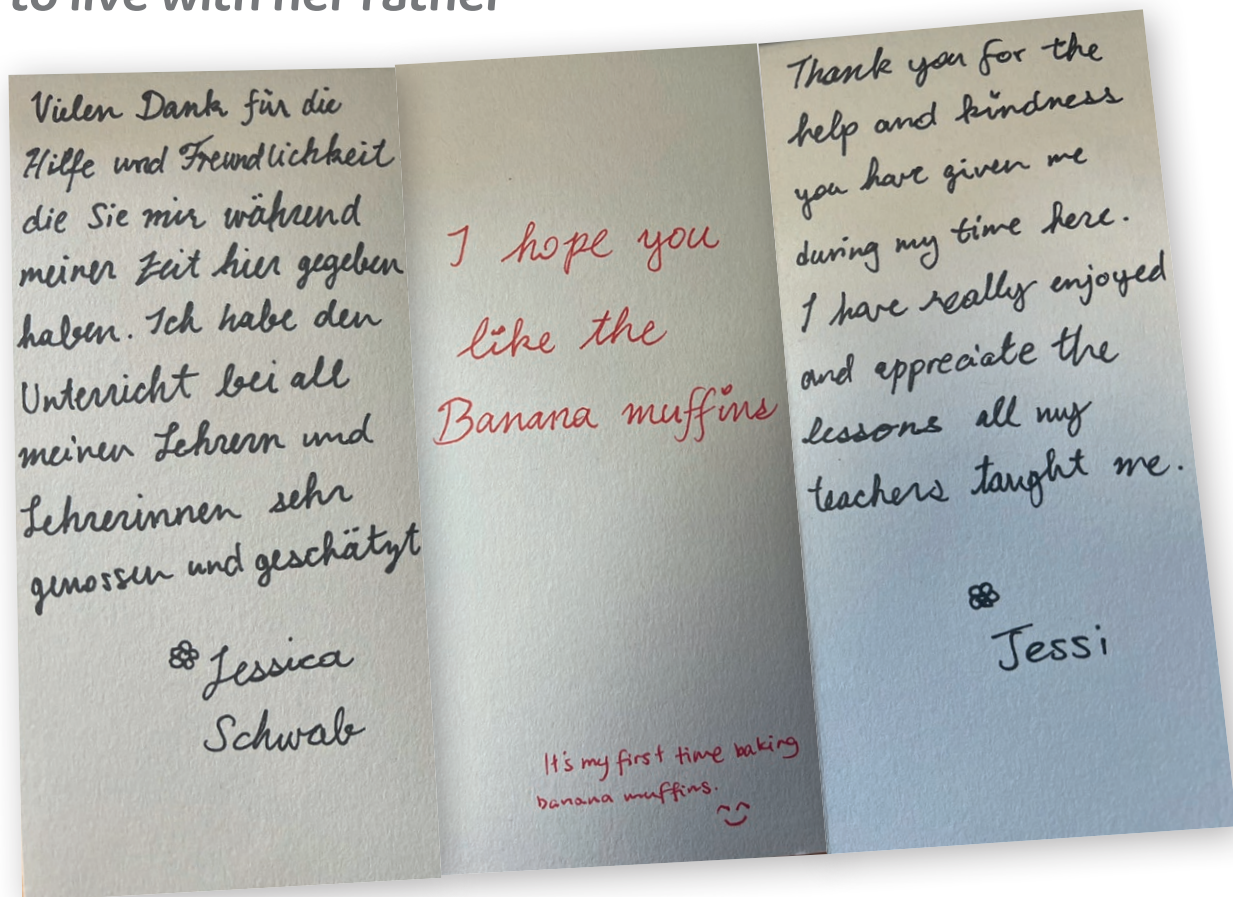 to live with her father
Vielen Dank für die
Hilfe und Freundlichkeit
die Sie mir während
meiner Zeit hier gegeben
haben. Ich habe den
Unterricht bei all
meinen Lehrern und
Lehrerinnen sehr
genossen und geschätzt
Jessica
Schwab
I hope you
like the
Banana muffins
It's my first time baking
banana muffins.
Thank you for the
help and kindness
you have given me
during my time here.
I have really enjoyed
and appreciate the
lessons all my
teachers taught me.
Jessi